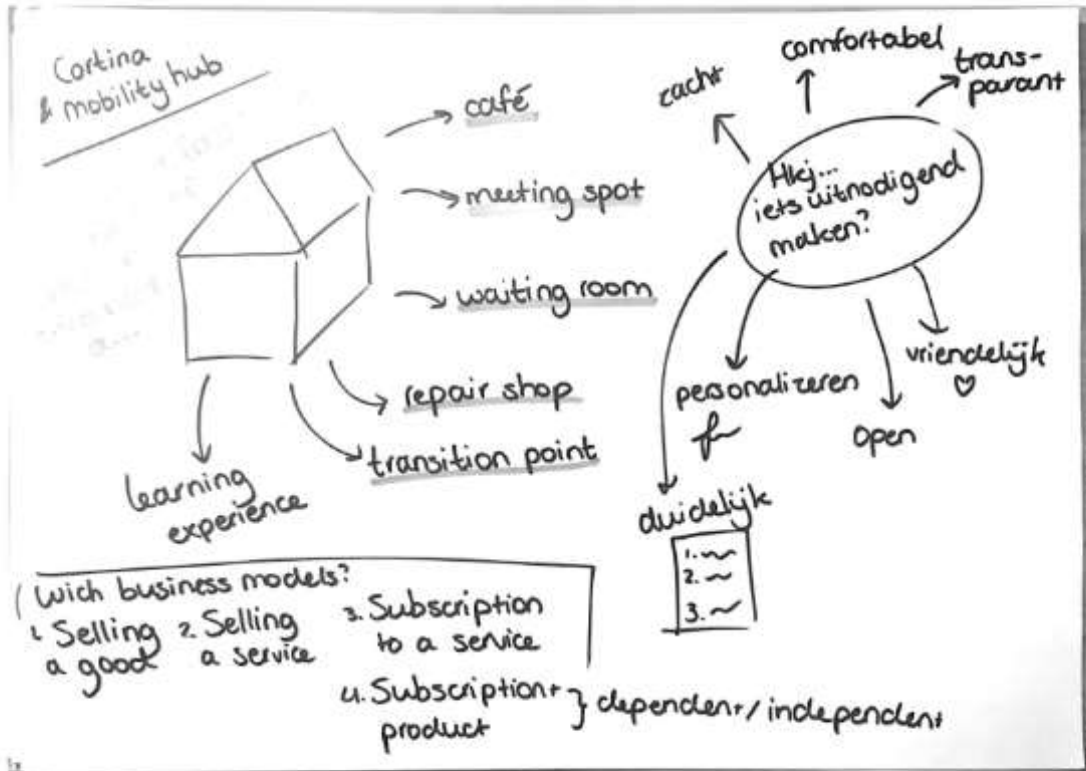 Cortina
& mobility hub
café
meeting spot
waiting room
repair shop
transition point
learning
experience
zacht
comfortabel
trans-
parant
Hkj...
iets uitnodigend
maken?
vriendelijk
open
personalizeren
duidelijk
1.
2.
3.
Wich business models?
1. Selling
a good
2. Selling
a service
3. Subscription
to a service
4. Subscription+
product
} dependent/independent